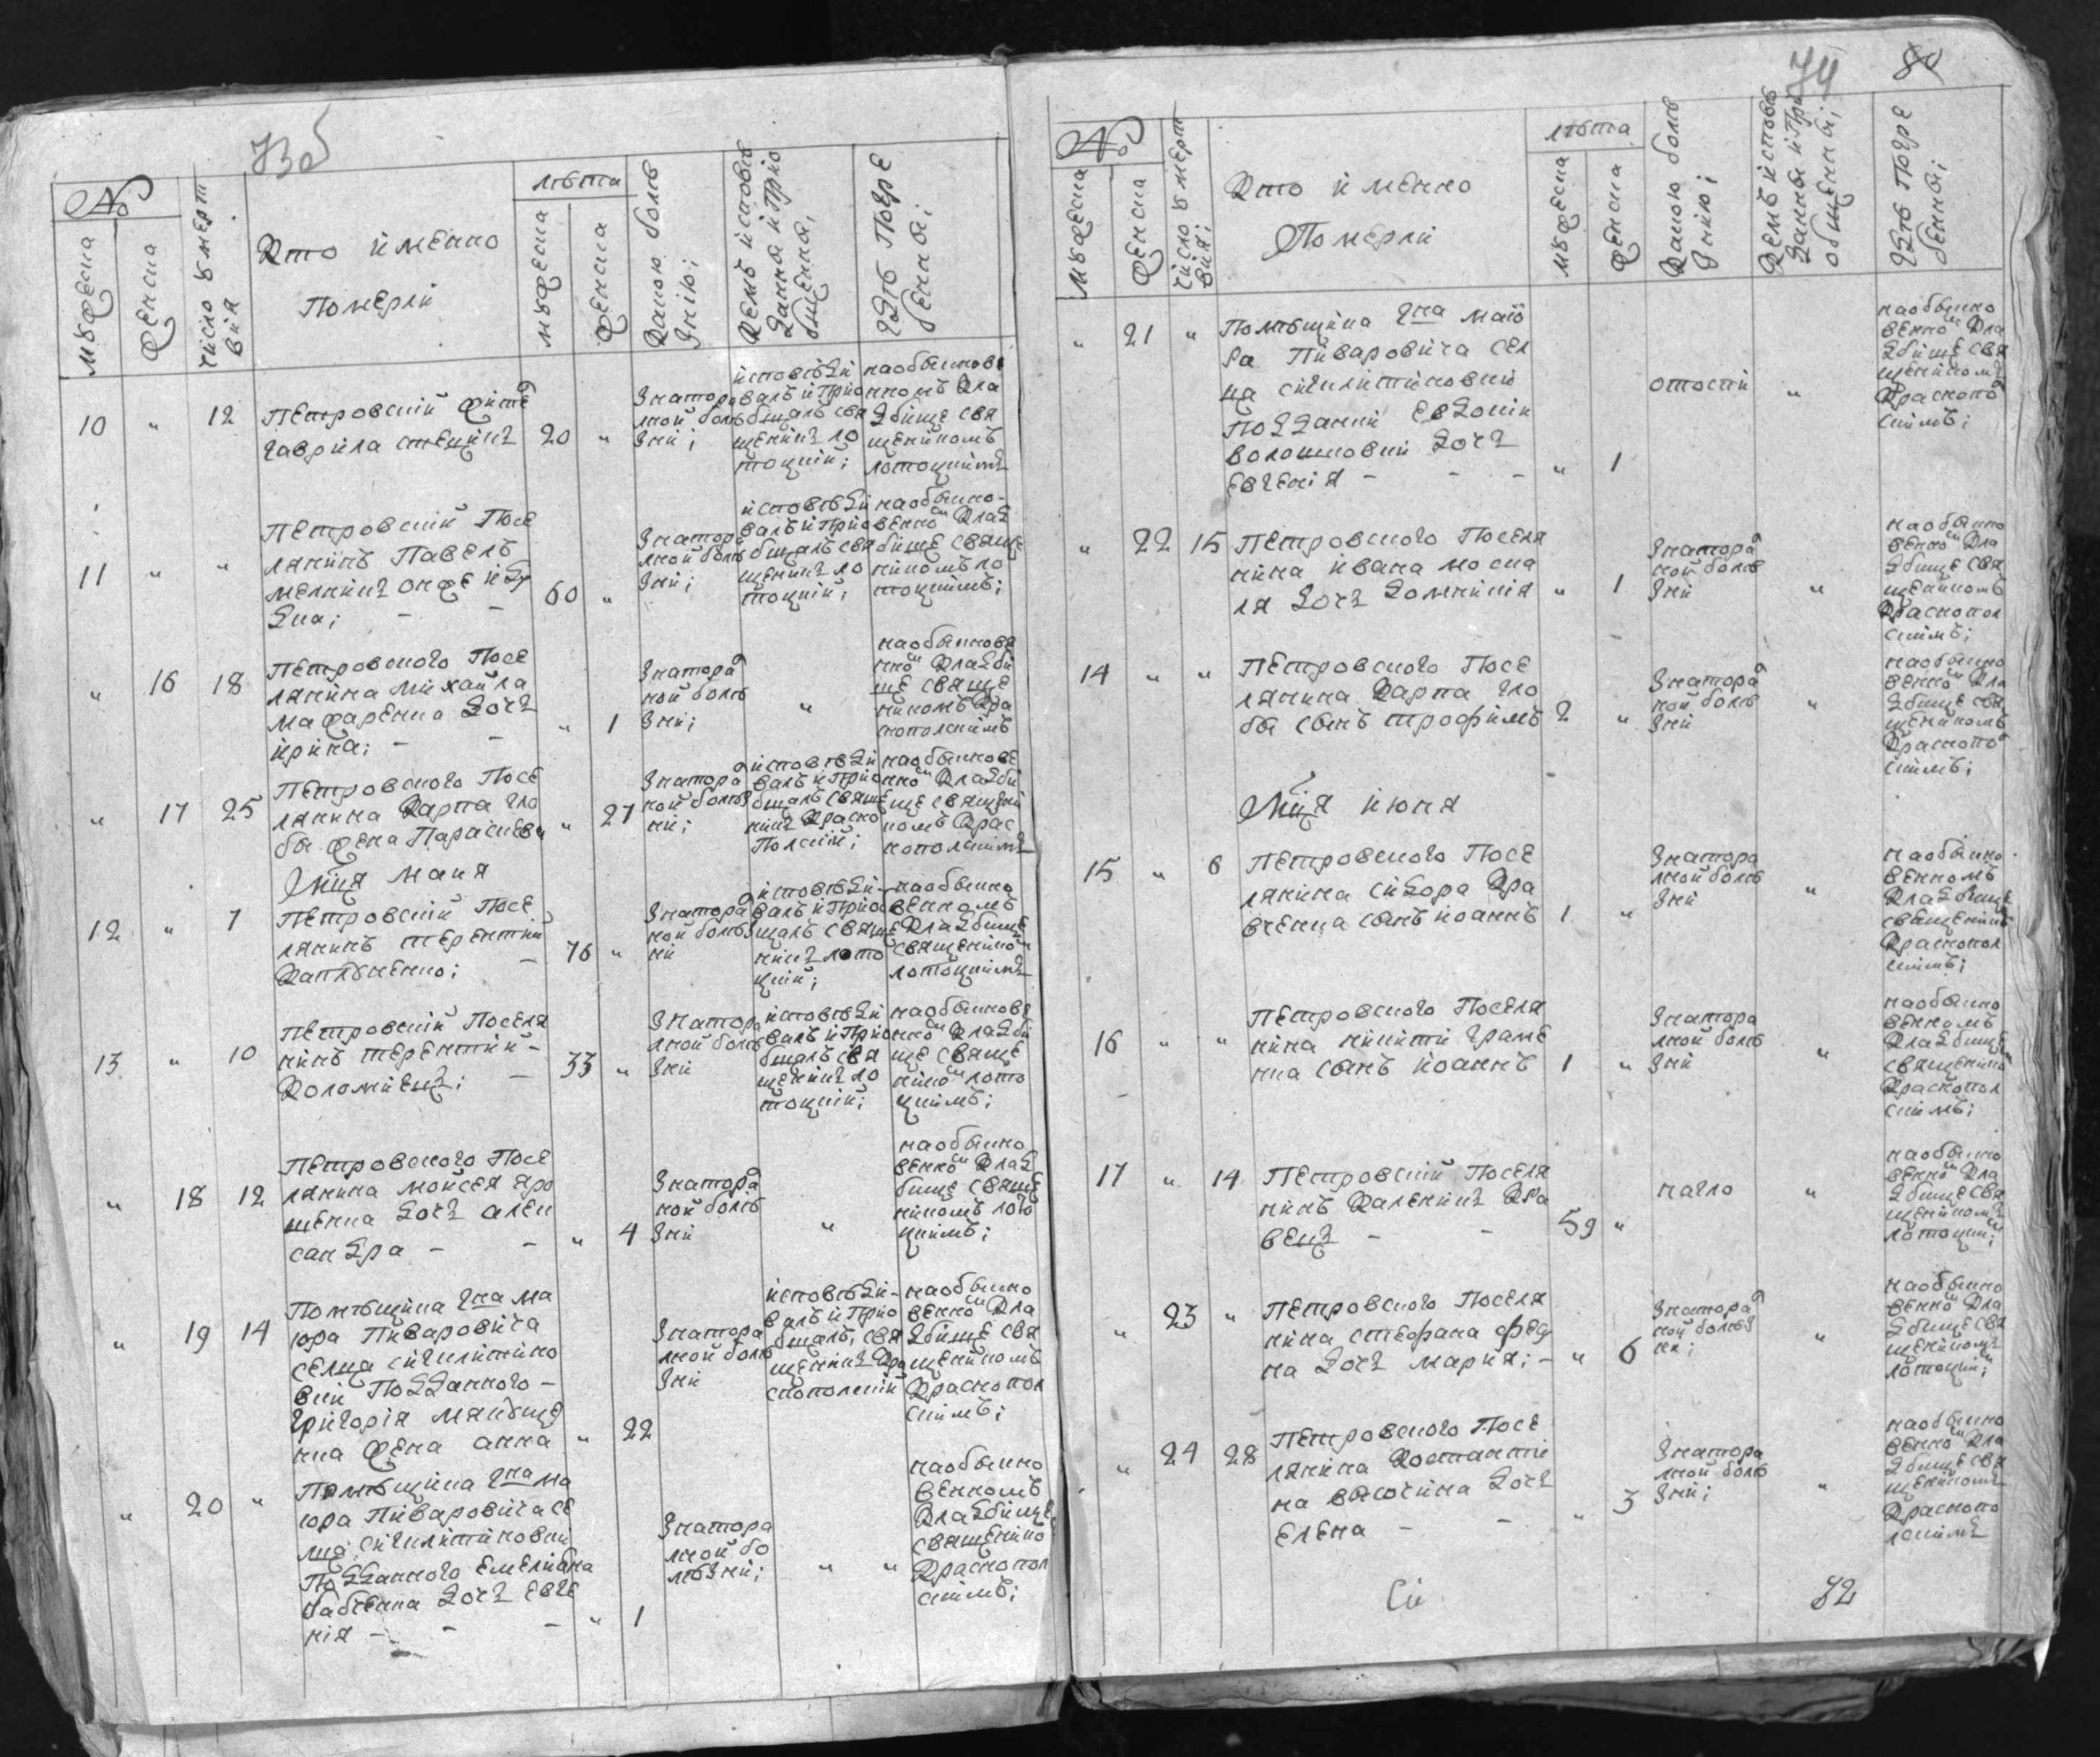 73об
№
мужеска
женска
число умерт
вия
Кто именно
померли
лѣта
мужеска
женска
Какою болѣ
знию;
Кемъ исповѣ
данна и прио
бщенна;
Гдѣ погре
бенна;
10 " 12
Петровский жите
Гаврила
20 "
Знатора
лной болѣ
зни;
исповѣди
валъ и прио
бщалъ свя
щеникъ ло
тоцкий;
наобыкнове
нномъ кла
дбище свя
щеникомъ
лотоцкимъ
11 " "
Петровский посе
лянинъ Павелъ
60 "
Знатора
лной болѣ
зни;
исповѣди
валъ и прио
бщалъ свя
щеникъ ло
тоцкий;
наобыкно-
венно клад
бище свяще
никомъ ло
тоцкимъ;
" 16 18
Петровского посе
лянина Михайла
Мачаренка дочъ
Ирина; - -
" 1
Знатора
ной болѣ
зни;
"
наобыкнове
нно кладби
ще свяще
никомъ кра
снополскимъ
" 17 25
Петровского посе
лянина Карпа гло
бы жена Параскева
" 27
Знатора
ной болѣз
ни;
исповѣди
валъ и прио
бщалъ свяще
никъ красно
полский;
наобыкнове
нно кладби
ще священи
комъ крас
нополскимъ
Мца маия
12 " 7
Петровский посе
лянинъ терентий
76 "
Знатора
ной болѣз
ни
исповѣди-
валъ и прио
щалъ свяще
никъ лото
цкий;
наобыкно
венномъ
кладбище
священико
лотоцкимъ
13 " 10
Петровский поселя
нинъ терентий -
Коломиецъ; -
33 "
Знатора
лной болѣ
зни
исповѣди
валъ и прио
бщалъ свя
щеникъ ло
тоцкий;
наобыкнове
нно кладби
ще свяще
нико лото
цкимъ;
" 18 12
Петровского посе
лянина Мойсея яро
шенка дочъ алек
сандра - -
" 4
Знатора
ной болѣ
зни
"
наобыкно
венно клад
бище свяще
никомъ лото
цкимъ;
" 19 14
Помѣщика гна ма
иора Пиваровича
селца сигилитино
вки подданного -
Григория
жена анна
" 22
Знатора
лной болѣ
зни
исповѣди-
валъ и прио
бщалъ, свя
щеникъ кра
снополский
наобыкно
венно кла
дбище свя
щеникомъ
краснопол
скимъ;
" 20 "
Помѣщика гна ма
иора Пиваровича се
лца сигилитиновки
подданного Емелияна
бабченка дочъ Евге
ния - - -
" 1
Знатора
лной бо
лѣзни;
" "
наобыкно
венномъ
кладбище
священико
краснопол
скимъ;
74 84
№
мужеска
женска
число умерт
вия;
Кто именно
Померли
лѣта
мужеска
женска
Какою болѣ
знию;
Кемъ исповѣ
данны и прі
общенны;
Гдѣ погре
бенны;
" 21 "
Помѣщика гна маіо
ра Пиваровича сел
ца сигилитиновки
подданий Евдокіи
волошковий дочъ
Евгения - - -
" 1
отоспи
"
наобыкно
венно кла
дбище свя
щеникомъ
краснопо
скимъ;
" 22 15
Петровского поселя
нина ивана моска
ля дочъ домникия
" 1
Знатора
ной болѣ
зни
"
наобыкно
венно кла
дбище свя
щеникомъ
краснопол
скимъ;
14 " "
Петровского посе
лянина Карпа гло
бы сынъ трофимъ
2 "
Знатора
ной болѣ
зни
"
наобыкно
венно кла
дбище свя
щеникомъ
краснопо
скимъ;
Мца июня
15 " 6
Петровского посе
лянина сидора кра
вченка сынъ иоаннъ
1 "
Знатора
лной болѣ
зни
"
наобыкно
венномъ
кладбище
священикомъ
краснопол
скимъ;
16 " "
Петровского поселя
нина никити
сынъ иоаннъ
1 "
Знатора
лной болѣ
зни
"
наобыкно
венномъ
кладбище
священико
краснопол
скимъ;
17 " 14
Петровский поселя
нинъ Каленикъ кра
вецъ - -
59 "
нагло
"
наобыкно
венно кла
дбище свя
щеникомъ
лотоцки;
" 23 "
Петровского поселя
нина стефана
дочъ Мария; -
" 6
Знатора
ной болѣз
ни;
"
наобыкно
венно кла
дбище свя
щеникомъ
лотоцки;
" 24 28
Петровского посе
лянина Костанти
на височина дочъ
Елена - -
" 3
Знатора
лной болѣ
зни;
"
наобыкно
венно кла
дбище свя
щеникомъ
краснопо
лскимъ